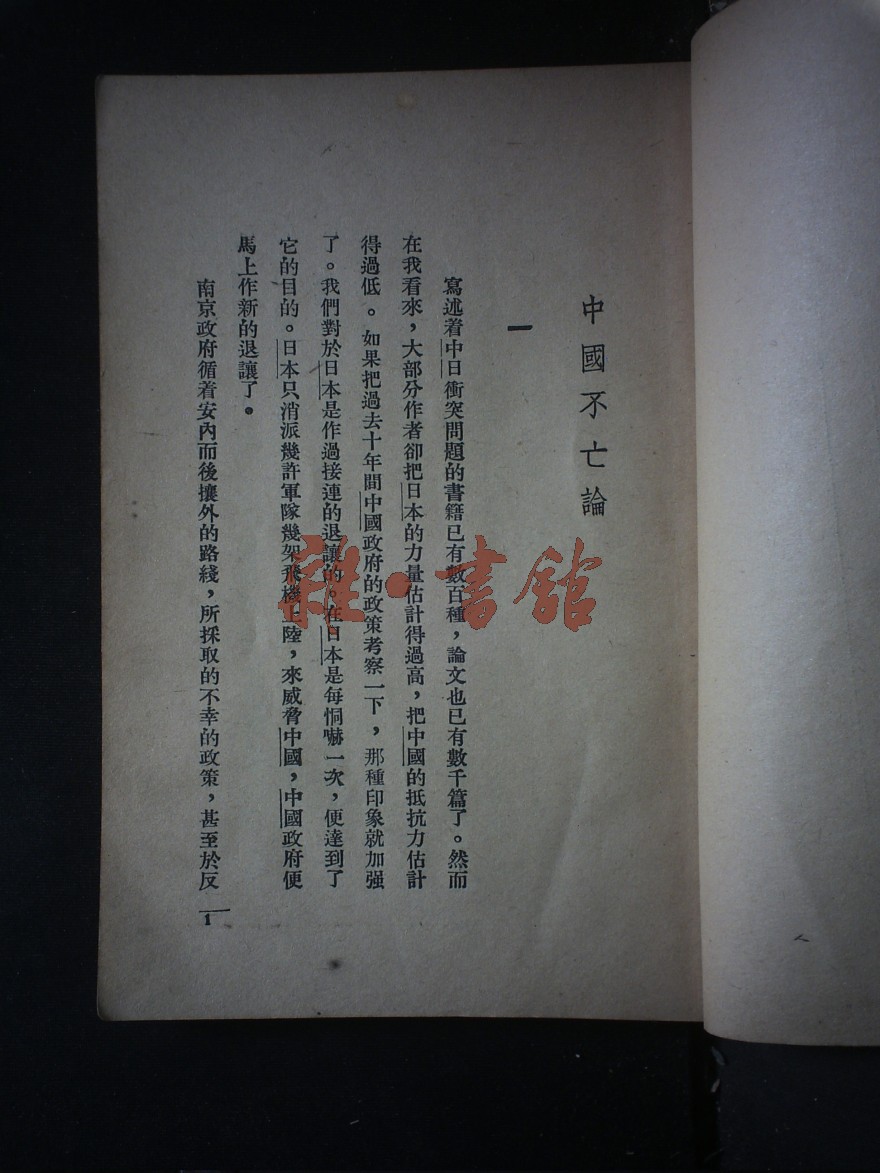 中國不亡論
一
寫述着中日衝突問題的書籍已有數百種，論文也已有數千篇了。然而
在我看來，大部分作者卻把日本的力量估計得過高，把中國的抵抗力估計
得過低。如果把過去十年間中國政府的政策考察一下，那種印象就加强
了。我們對於日本是作過接連的退讓的。在日本是每恫嚇一次，便達到了
它的目的。日本只消派幾許軍隊幾架飛機上陸，來威脅中國，中國政府便
馬上作新的退讓了。
南京政府循着安內而後攘外的路綫，所採取的不幸的政策，甚至於反
1
雜·書館